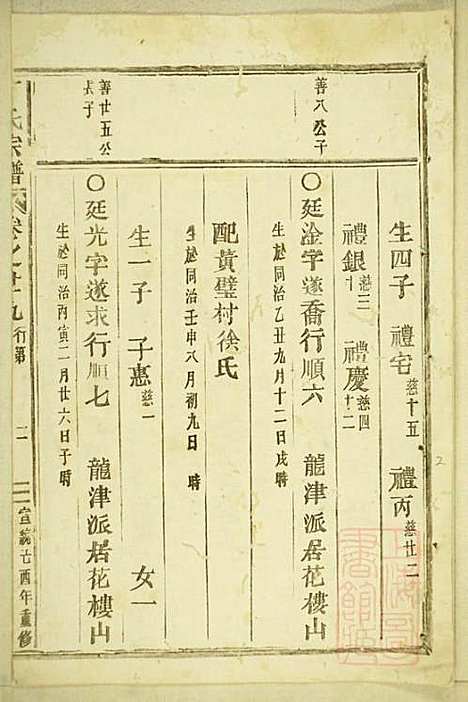 生四子 禮宅慈十五 禮丙慈廿二
禮銀慈三十 禮慶慈四十二
善八公子
〇廷淦字遂喬行順六 龍津派居花樓山
生於同治乙丑九月十二日戌時
配黃璧村徐氏
生於同治壬申八月初九日 時
生一子 子惠慈一 女一
善廿五公長子
〇廷光字遂求行順七 龍津派居花樓山
生於同治丙寅二月廿六日子時
氏宗譜 卷之廿九 行第 二 宣統 酉年重修